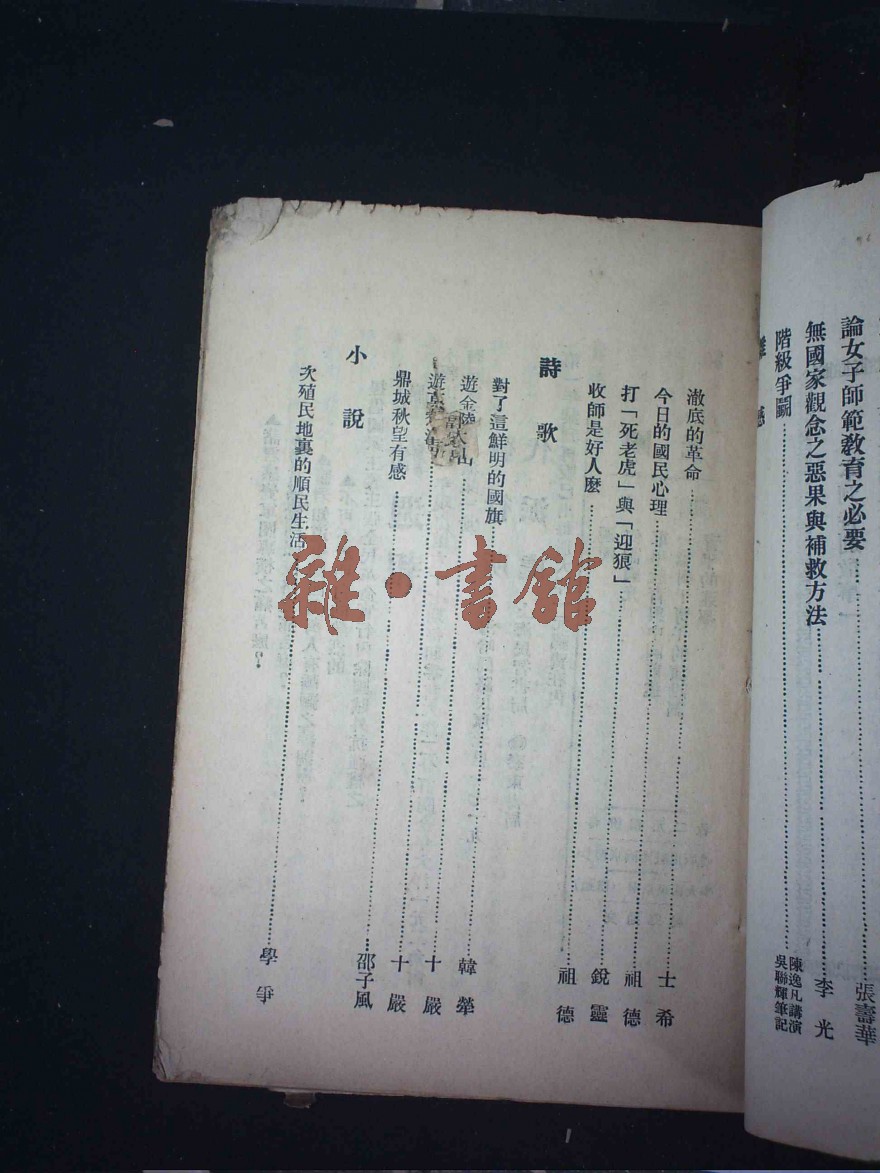 論女子師範教育之必要……張壽華
無國家觀念之惡果與補救方法……李光
階級爭鬭……陳逸凡講演
吳聯輝筆記
澈底的革命……士希
今日的國民心理……祖德
打「死老虎」與「迎狼」……銳靈
收師是好人麼……祖德
詩歌
對了這鮮明的國旗……韓犖
遊金陵山……十嚴
遊……十嚴
鼎城秋望有感……邵子風
小說
次殖民地裏的順民生活……學步
雜·書館